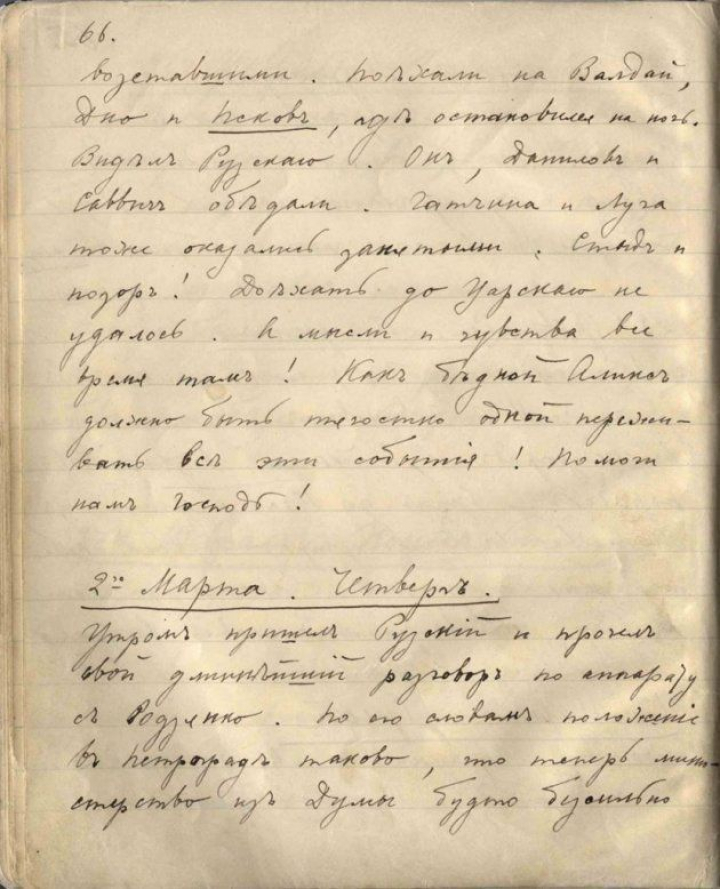 66.
возставшими. Поѣхали на Валдай,
Дно и Псковъ, гдѣ остановился на ночь.
Видѣлъ Рузскаго. Онъ, Даниловъ и
Саввичъ обѣдали. Гатчина и Луга
тоже оказались занятыми. Стыдъ и
позоръ! Доѣхать до Царскаго не
удалось. А мысли и чувства все
время тамъ! Какъ бѣдной Аликсъ
должно быть тягостно одной пережи-
вать всѣ эти событія! Помоги
намъ Господь!
2го Марта. Четвергъ.
Утромъ пришелъ Рузскій и прочелъ
свой длиннѣйшій разговоръ по аппарату
съ Родзянко. По его словамъ положеніе
въ Петроградѣ таково, что теперь мини-
стерство изъ Думы будто безсильно